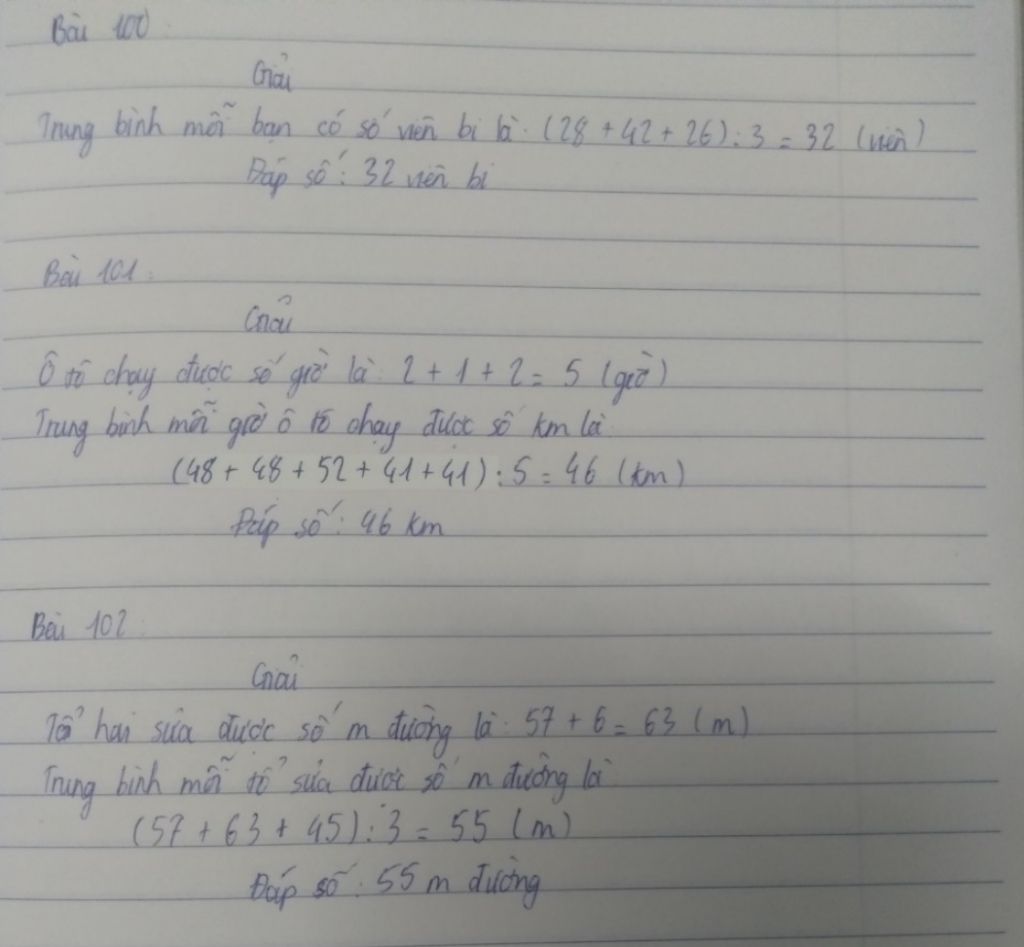 Bài 100:
Giải
Trung bình mỗi bạn có số viên bi là: (28 + 42 + 26) : 3 = 32 (viên)
Đáp số: 32 viên bi
Bài 101:
Giải
Ô tô chạy được số giờ là: 2 + 1 + 2 = 5 (giờ)
Trung bình mỗi giờ ô tô chạy được số km là:
(48 + 48 + 52 + 41 + 41) : 5 = 46 (km)
Đáp số: 46 km
Bài 102:
Giải
Tổ hai sửa được số m đường là: 57 + 6 = 63 (m)
Trung bình mỗi tổ sửa được số m đường là:
(57 + 63 + 45) : 3 = 55 (m)
Đáp số: 55 m đường